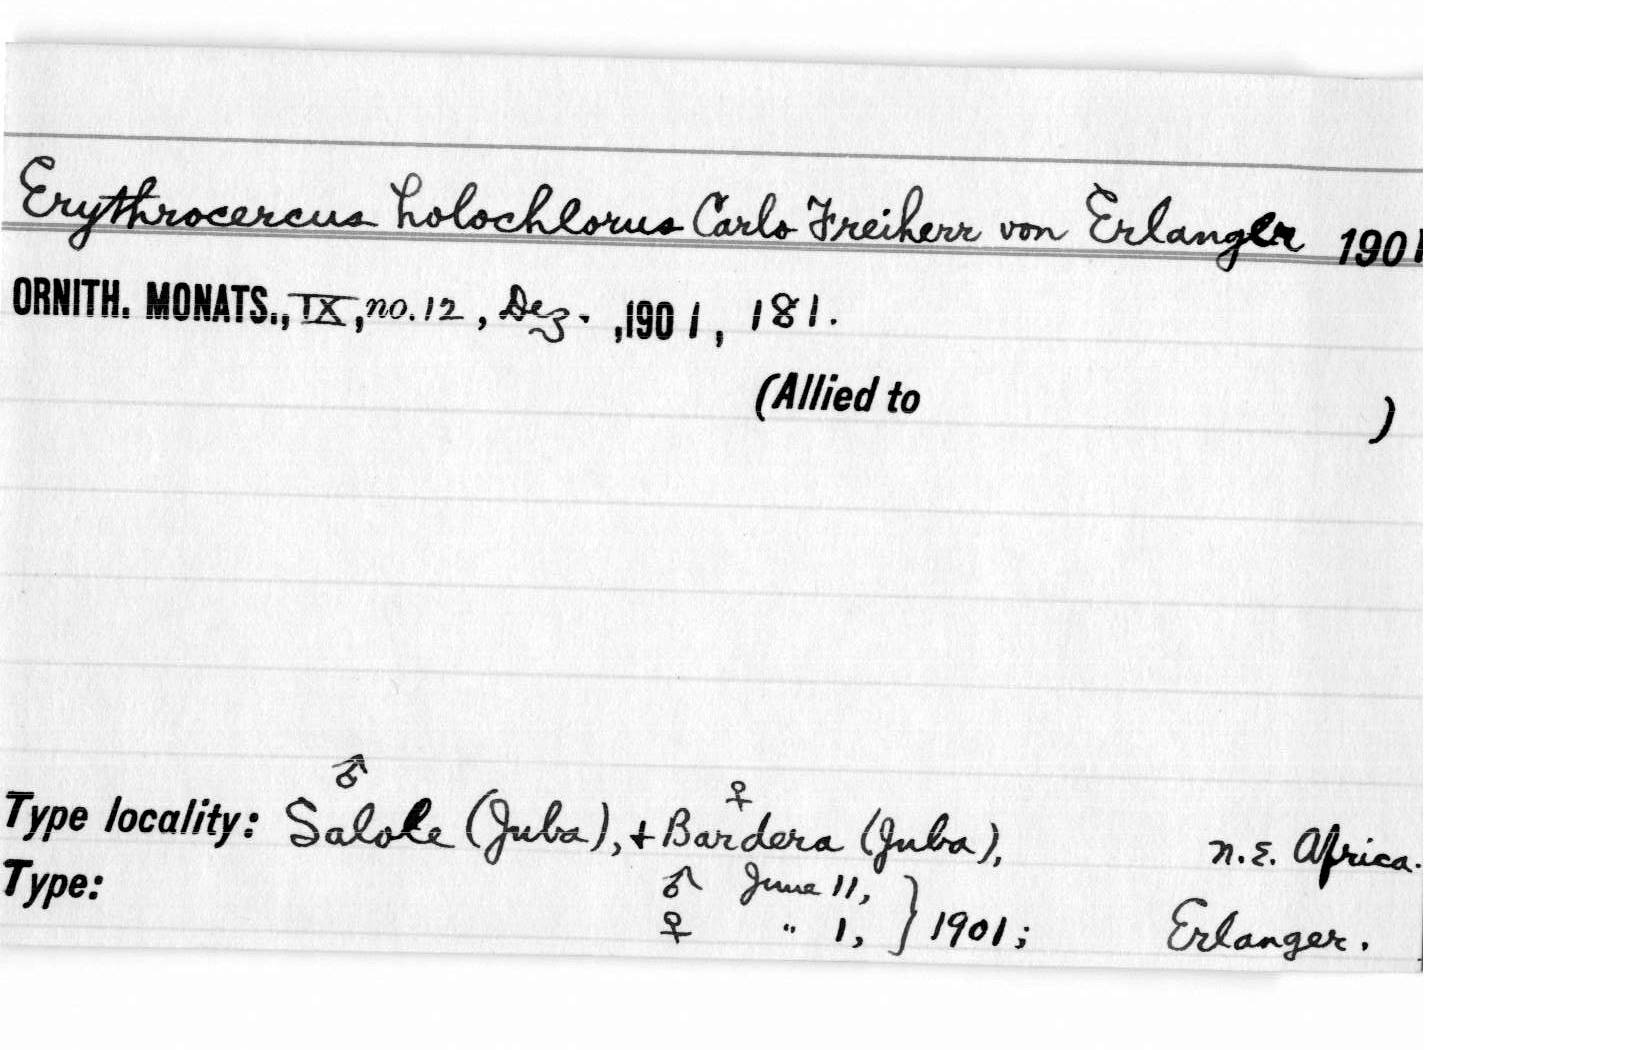 Erythrocercus holochlorus Carlo Freiherr von Erlanger 1901
ORNITH. MONATS., IX, no. 12, Dez. ,1901, 181.
(Allied to )
♂ ♀
Type locality: Salole (Juba), + Bardera (Juba), n.E. Africa.
Type: ♂ June 11,
♀ " 1, } 1901; Erlanger.